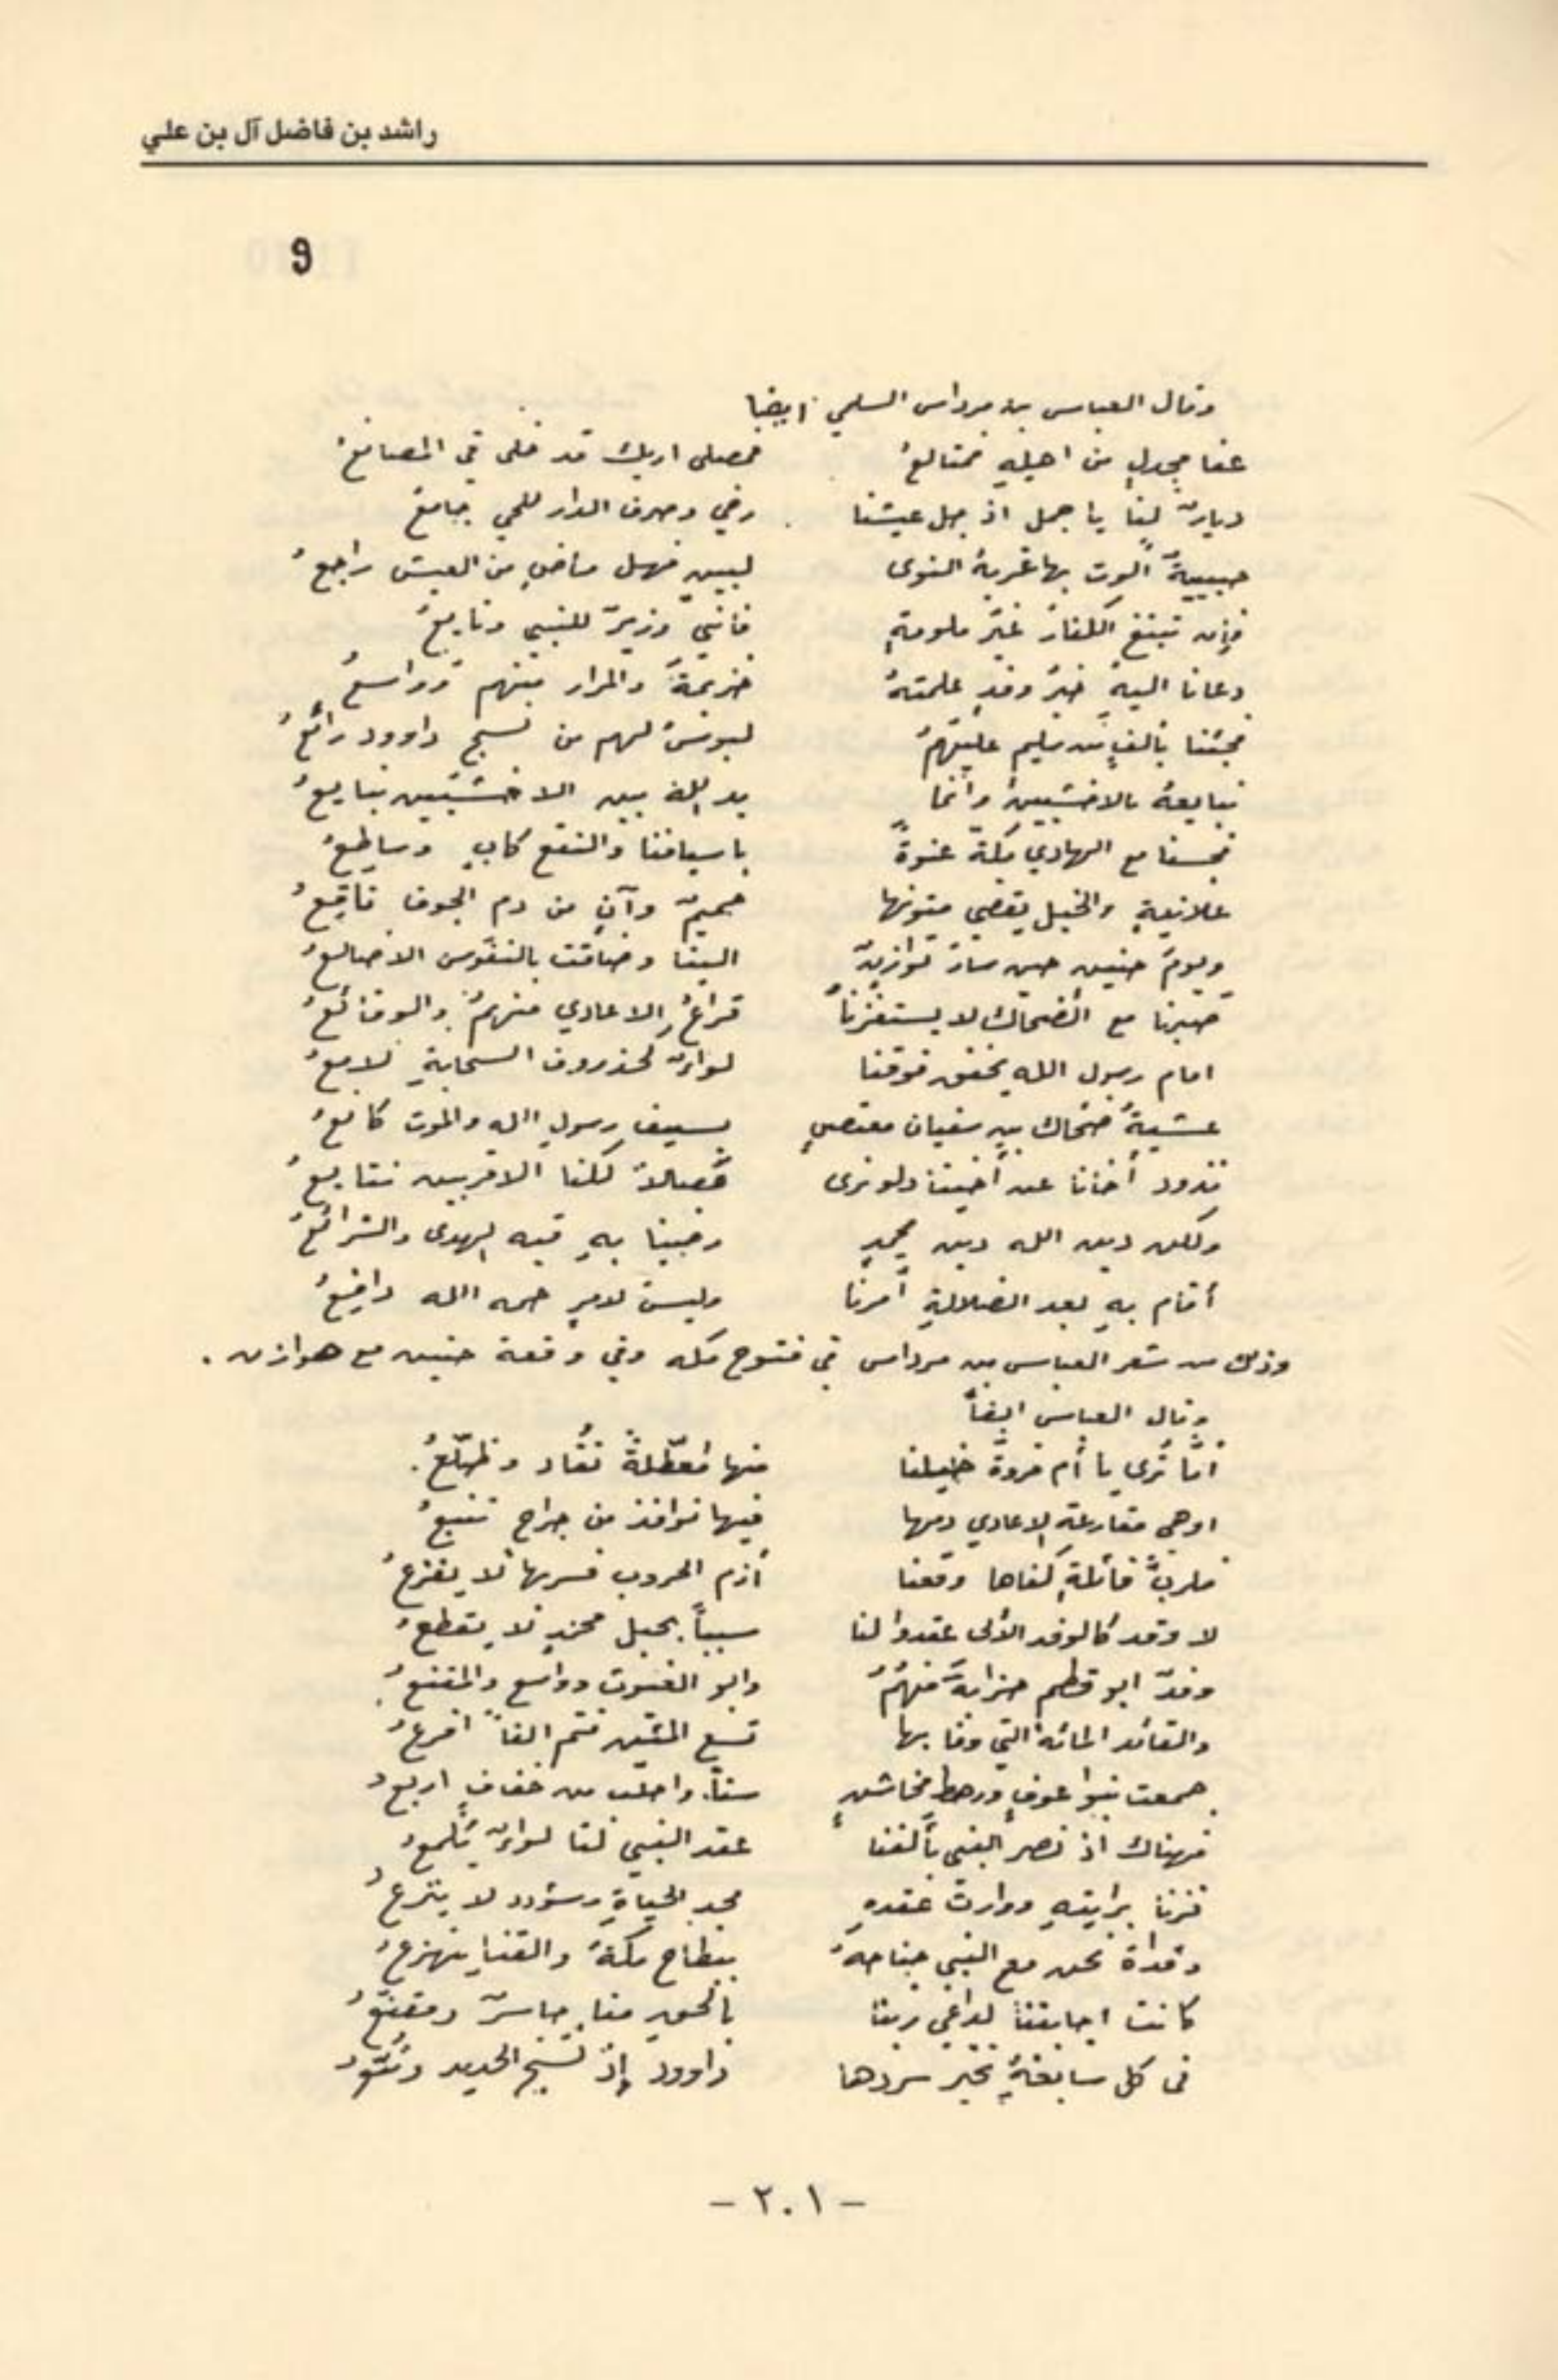 راشد بن فاضل آل بن علي
9
وقال العباس بن مرداس السلمي ايضا
عفا مجدلٍ من اهله فمتالعُ فمصلى اريك قد خلى في المصانعُ
ديارٌ لنا يا جمل اذ جل عيشنا رخي وصرف الدار للحي جامعُ
حبيبيةٌ ألوت بها غربة النوى لبين فهل ماضٍ من العيش راجعُ
فإن تبتغ الكفار غير ملومةٍ فاني وزيرٌ للنبي وتابعُ
دعانا اليه خير وفدٍ علمتهُ خزيمةُ والمرار منهم وواسعُ
فجئنا بألفٍ من سليم عليهمُ لبوسٌ لهم من نسج داوود رائعُ
نبايعهُ بالاخشبين وانما يد الله بين الاخشبين نبايعُ
فجسنا مع الهادي مكة عنوةً باسيافنا والنقع كابٍ وساطعُ
علانيةٍ والخيل يغشي متونها حميمٌ وآنٍ من دم الجوف ناقعُ
ويوم حنين حين سار هوازنٌ الينا وضاقت بالنفوس الاضالعُ
صبرنا مع الضحاك لا يستفزنا قراعُ الاعادي منهمُ والوقائعُ
امام رسول الله يخفق فوقنا لواءٌ كخذروف السحابةِ لامعُ
عشيةَ ضحاك بن سفيان معتصٍ بسيف رسول الله والموت كانعُ
نذود أخانا عن أخينا ولو نرى مصالاً لكنا الاقربين نتابعُ
ولكن دين الله دين محمدٍ رضينا بهِ فيه الهدى والشرائعُ
أقام بهِ بعد الضلالةِ أمرنا وليس لامرٍ حمه الله دافعُ
وذلك من شعر العباس بن مرداس في فتوح مكه وفي وقعة حنين مع هوازن .
وقال العباس ايضاً
امّا تري يا أم فروة خيلنا منها مُعطّلةً تُقاد وظلّعُ.
اوهى مقارعة الاعادي دمها فيها نوافذ من جراح تنبعُ
فلربَّ قائلةٍ كفاها وقعنا أزم الحروب فسربها لا يفزعُ
لا وفد كالوفد الألى عقدوا لنا سبباً بحبل محمدٍ لا يقطعُ
وفدٌ ابو قطم حزابةُ منهُمُ وابو الغيوث وواسع والمقنعُ
والقائد المائة التي وفا بها تسع المئين فتم الفاً اقرعُ
جمعت بنوا عوفٍ ورهط مخاشنٍ ستاً، واحلب من خفافٍ اربعُ
فهناك اذ نصر النبي بألفنا عقد النبي لنا لواءٌ يلمعُ
فزنا برايتهِ ووارث عقدهِ مجد الحياةِ وسؤدد لا ينزعُ
وغداة نحن مع النبي جناحهُ ببطاح مكةُ والقنا يتهزعُ
كانت اجابتنا لداعي ربنا بالحق منا حاسرٌ ومقنّعُ
في كل سابغةٍ تخير سردها داوود إذ نسج الحديد وتُبّعُ
- ٢٠١ -